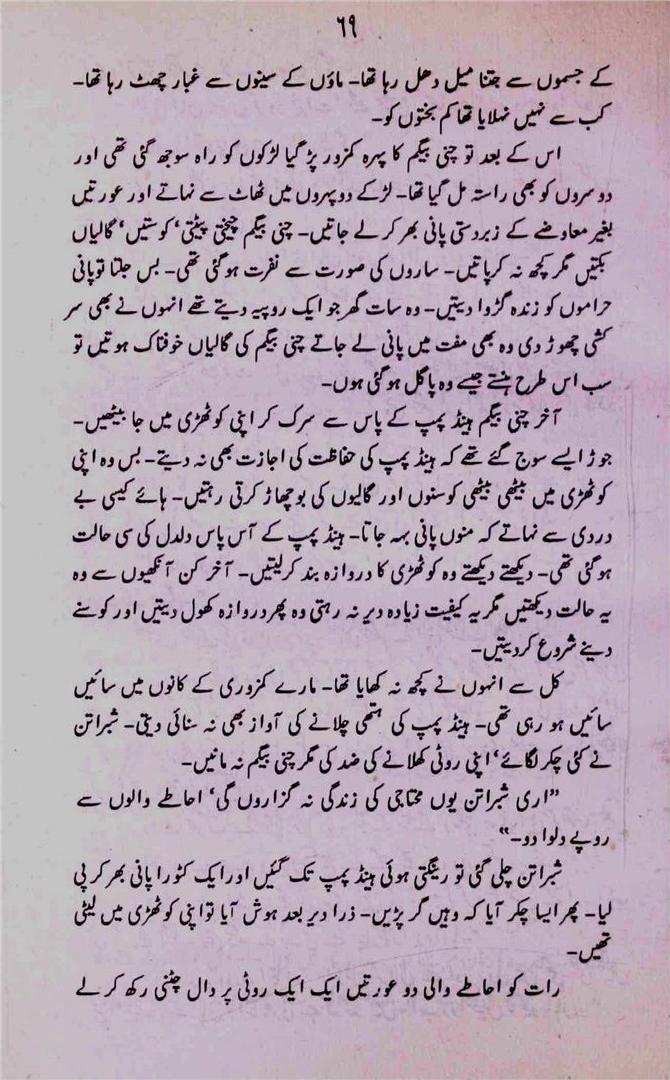 ۶۹
کے جسموں سے جتنا میل دھل رہا تھا۔ ماؤں کے سینوں سے غبار چھٹ رہا تھا۔
کب سے نہیں نہلایا تھا کم بختوں کو۔
اس کے بعد تو چنی بیگم کا پہرہ کمزور پڑ گیا لڑکوں کو راہ سوجھ گئی تھی اور
دوسروں کو بھی راستہ مل گیا تھا۔ لڑکے دوپہروں میں ٹھاٹ سے نہاتے اور عورتیں
بغیر معاوضے کے زبردستی پانی بھر کر لے جاتیں۔ چنی بیگم چیختی پیٹتی‘ کوستیں‘ گالیاں
بکتیں مگر کچھ نہ کرپاتیں۔ ساروں کی صورت سے نفرت ہوگئی تھی۔ بس چلتا تو پانی
حراموں کو زندہ گڑوا دیتیں۔ وہ سات گھر جو ایک روپیہ دیتے تھے انہوں نے بھی سر
کشی چھوڑ دی وہ بھی مفت میں پانی لے جاتے چنی بیگم کی گالیاں خوفناک ہوتیں تو
سب اس طرح ہنستے جیسے وہ پاگل ہوگئی ہوں۔
آخر چنی بیگم ہینڈ پمپ کے پاس سے سرک کر اپنی کوٹھڑی میں جا بیٹھیں۔
جوڑ ایسے سوج گئے تھے کہ ہینڈ پمپ کی حفاظت کی اجازت بھی نہ دیتے۔ بس وہ اپنی
کوٹھڑی میں بیٹھی بیٹھی کوسنوں اور گالیوں کی بوچھاڑ کرتی رہتیں۔ ہائے کیسی بے
دردی سے نہاتے کہ منوں پانی بہہ جاتا۔ ہینڈ پمپ کے آس پاس دلدل کی سی حالت
ہوگئی تھی۔ دیکھتے دیکھتے وہ کوٹھڑی کا دروازہ بند کرلیتیں۔ آخر کن آنکھوں سے وہ
یہ حالت دیکھتیں مگر یہ کیفیت زیادہ دیر نہ رہتی وہ پھر دروازہ کھول دیتیں اور کوسنے
دینے شروع کردیتیں۔
کل سے انہوں نے کچھ نہ کھایا تھا۔ مارے کمزوری کے کانوں میں سائیں
سائیں ہو رہی تھی۔ ہینڈ پمپ کی ہتھی چلانے کی آواز بھی نہ سنائی دیتی۔ شبراتن
نے کئی چکر لگائے‘ اپنی روٹی کھلانے کی ضد کی مگر چنی بیگم نہ مانیں۔
”اری شبراتن یوں محتاجی کی زندگی نہ گزاروں گی‘ احاطے والوں سے
روپے دلوا دو۔“
شبراتن چلی گئی تو رینگتی ہوئی ہینڈ پمپ تک گئیں اور ایک کٹورا پانی بھر کر پی
لیا۔ پھر ایسا چکر آیا کہ وہیں گر پڑیں۔ ذرا دیر بعد ہوش آیا تو اپنی کوٹھڑی میں لیٹی
تھیں۔
رات کو احاطے والی دو عورتیں ایک ایک روٹی پر دال چٹنی رکھ کر لے